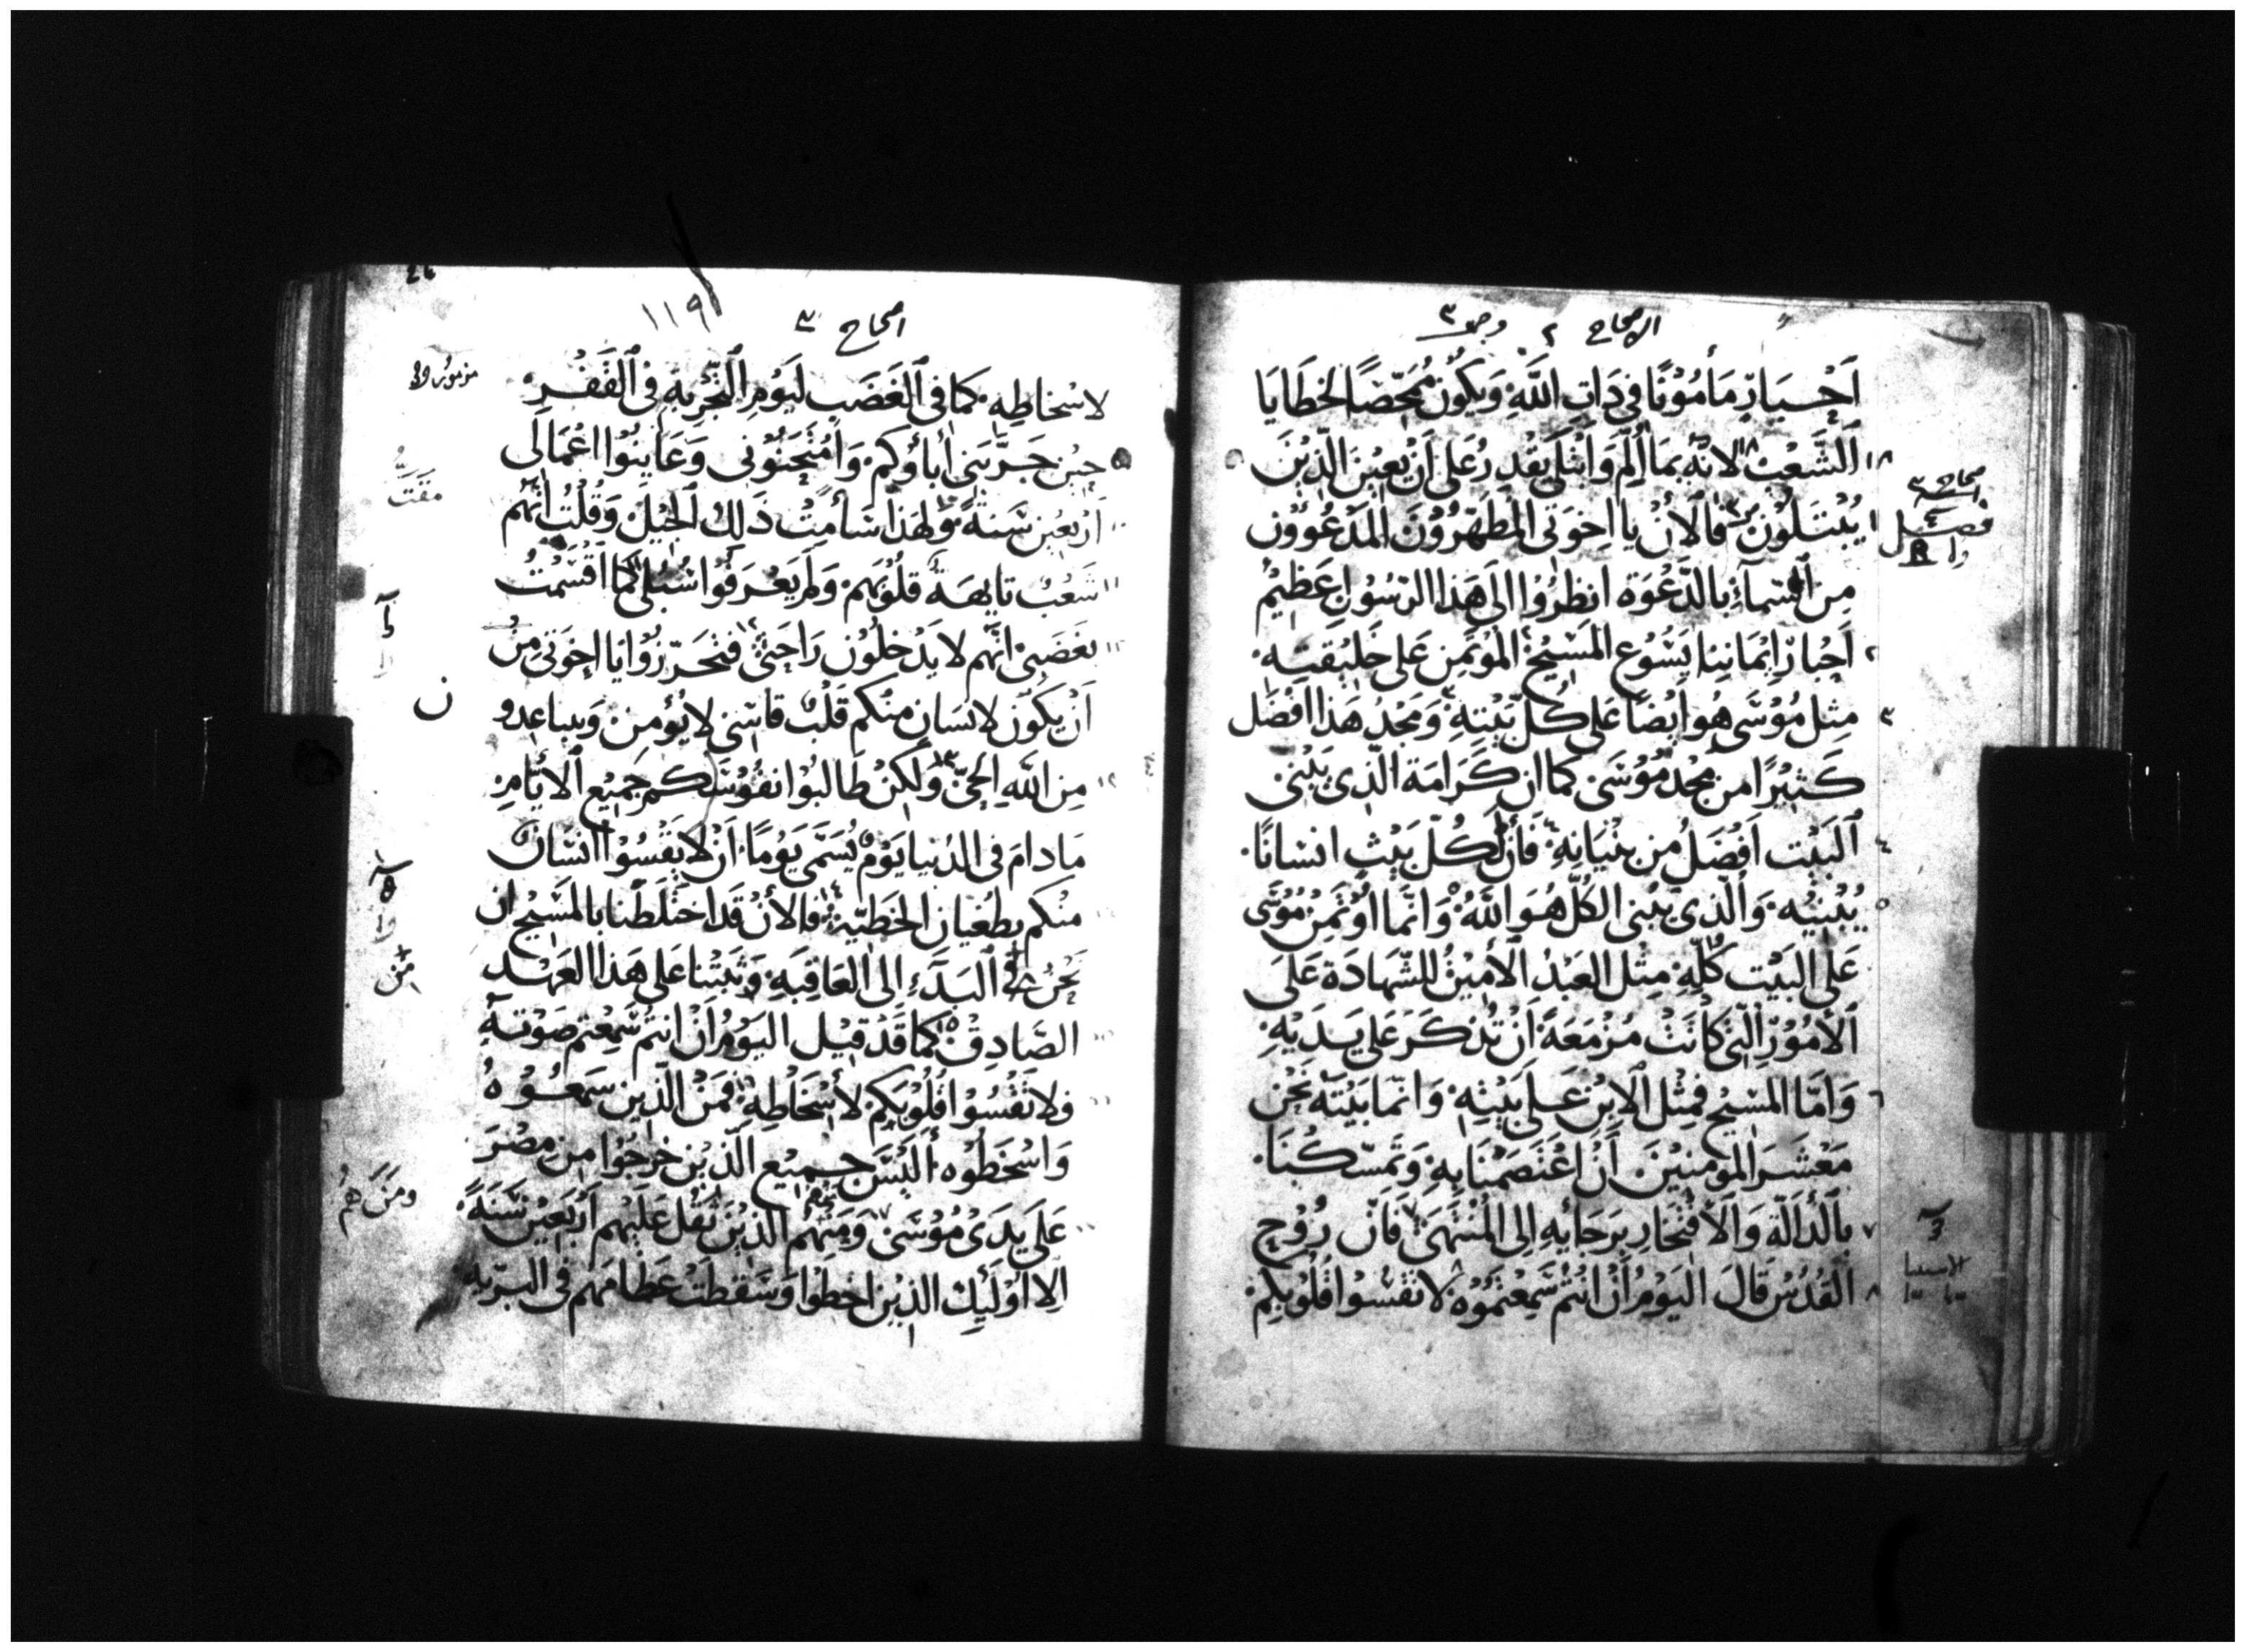 الاصحاح ٢ وصـ ٣
اَحْبَارٍ مَأمُوْنًا فِي ذَاتِ اللَّهِ وَيَكُونُ مُمَحِّصًا لخطَايَا
١٨ اَلشَّعْبِ لانّه بمَا أَلِمَ وَابْتُلِي يَقْدِرُ عَلى أنْ يُعِيْنَ الّذِيْنَ
اصحاح ٣
فصل
١ يُبْتَلُوْن فالأنْ يا اخوَتى المُطهّرُوْنَ المَدْعُوُّوْن
مِنَ السّمآءِ بالدّعْوَة انظرُوْا الى هَذا الرّسُوْلِ عَظِيْمُ
٢ اَحْبارِ اِيْمَانِنا يَسُوْع المَسيْحْ المُؤتَمِنْ عَلى خَليْقتِهِ
٣ مِثل مُوْسَى هُو أيْضًا عَلى كُلّ بَيْتهِ وَمَجْدُ هَذا افضَل
كَثِيْرًا من مَجْد مُوْسَى كما ان كَرَامَة الّذِى يَبْنى
٤ اَلبَيْت اَفْضَلُ مِن بُنْيَانِهِ فَانّ لكُلّ بَيْتٍ انسَانًا
٥ يُبْنِيْهِ وَالّذِى يَبْنى الكُلّ هُوَ اللَّهُ وَانّما اُوْتُمِنْ مُوْسَى
عَلى البَيْت كُلّهِ مِثل العَبْدُ الأمِيْنُ للشّهادَة عَلَى
الأمُوْرِ الّتى كانَتْ مُزْمَعَةً أنْ تُذكَرَ عَلى يَدَيْهِ
٦ وَامّا المَسيْح فمِثل الابْن عَلى بَيْتِهِ وَانّما بَيْتَه نَحْن
مَعْشَرَ المؤمنيْنَ اَنْ اعْتَصَمْنا بهِ وَتمسّكْنَا
٧ بالدّالّة وَالافْتخارِ برَجَائِهِ اِلى المُنْتَهَى فَانّ رُوْح
٨ القُدُسْ قَالَ اليَوْمُ اَنْ انتُم سَمِعْتُمُوْهُ لا تقسُوْا قُلُوْبكُمْ
اصحاح ٣
١١٩
لاسْخاطِهِ كمَا فى الغَضَب ليَوْمِ التّجْرِبَةِ فِى القَفْرِ
حِيْن جَرَّبَنى أباؤكم وَامْتحَنُوْنى وَعَايَنُوْا اعْمَالى
اَرْبعِيْن سَنةً وَلِهَذا سَأمْتُ ذَلكَ الجِيْل وَقُلْتُ انّهُم
شَعْبٌ تايهَة قلُوْبهُم وَلَم يَعْرفُوْا سُبُلى كما اَقْسَمْتُ
بغَضَبِى انّهم لا يَدْخلُوْن رَاحَتى فتحَرّزُوْا يا اخوَتى مِنْ
اَنْ يكُوْنَ لانسَانٍ مِنْكم قَلْبٌ قاسى لا يُؤمِن وَيباعِدو
ن
مِن اللَّهِ الحَىّ وَلكِنْ طَالبُوْا نفُوْسَكُم جَمِيْع الأيّامِ
مَا دامَ فى الدّنيا يَوْمٌ يُسَمّى يَوْمًا اَنْ لا يَقْسُوْا انسَانٌ
منكم بطُغيان الخَطيّة فالأنْ قَد اختلَطْنا بالمَسيْح ان
نَحْن من اَلبَدَءِ اِلى العَاقِبَهِ وَثَبتْنا عَلى هَذا العَهْد
الصّادِقْ كما قَدْ قيْل اليَوْمُ اَنْ انتم سَمِعْتم صَوْتهِ
فلا تَقْسُوْا قُلُوْبكم لأسْخاطِهِ فمَن الّذِيْن سَمعُوْهُ
وَاسْخطُوه ألَيْسَ جَميْع الّذيْن خرَجُوْا مِن مِصْرَ
عَلى يَدَىْ مُوْسَى وَمَنْهُم الذيْن ثَقُل عَلَيْهم اَرْبَعيْن سَنَةً
ومَنْ هُم
الا اوْلَئِك الذيْن اخطوْا وَسَقطَتْ عَظامَهُم فى البَرّيه